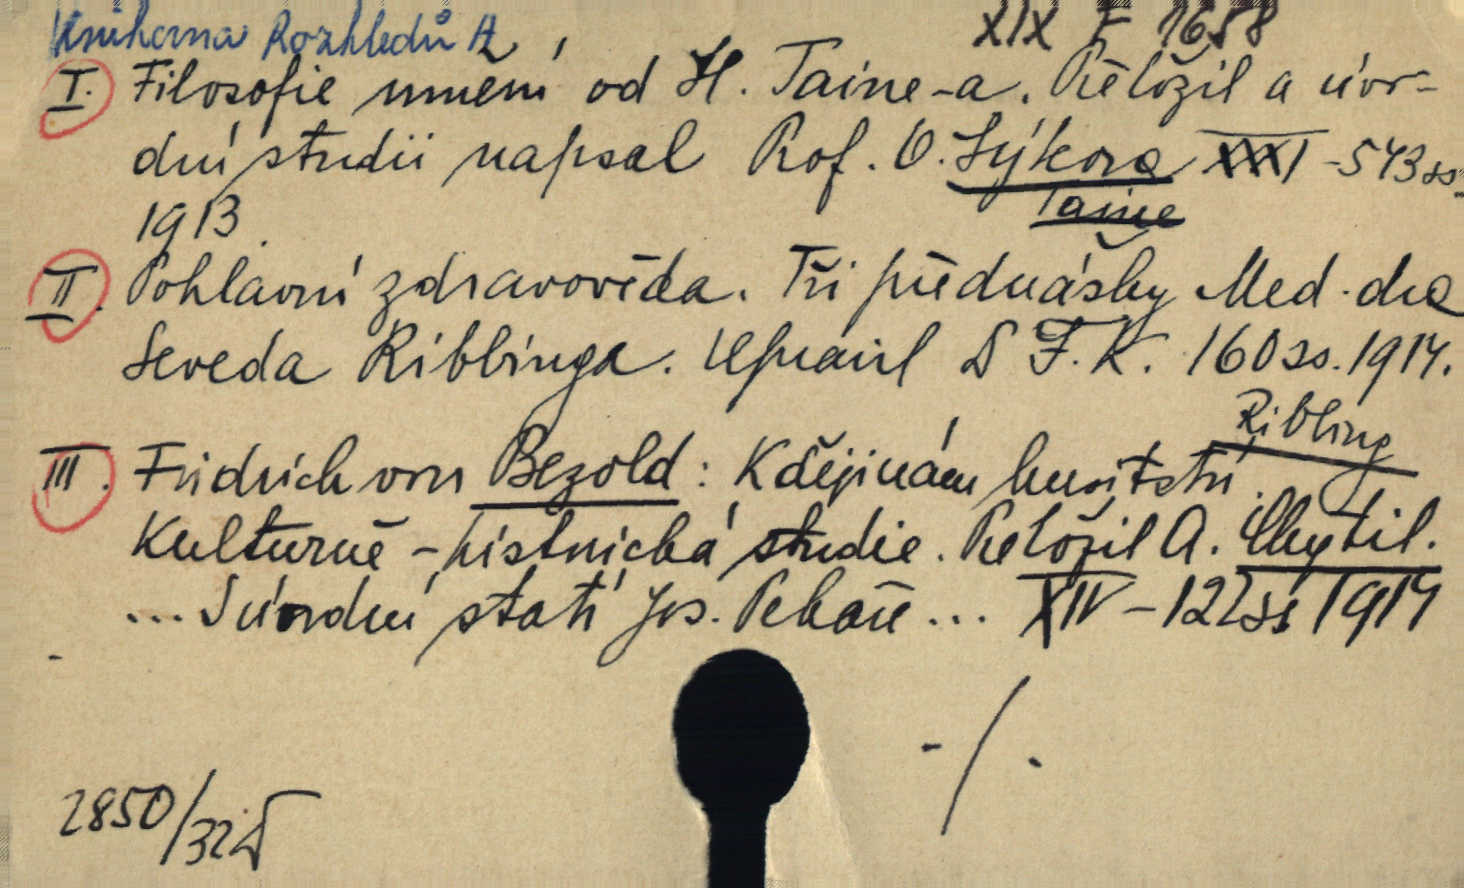 Knihovna Rozhledů A XIX F 1688
I. Filosofie umění od H. Taine-a. Přeložil a úvo-
dní studii napsal Prof. O. Sýkora XXXI - 543 ss.
1913. Taine
II. Pohlavní zdravověda. Tři přednášky Med. dra
Seveda Ribbinga. Upravil D F. K. 160 ss. 1914.
Ribbing
III. Fridrich von Bezold: K dějinám husitství.
Kulturně-historická studie. Přeložil A. Chytil.
... S úvodní statí Jos. Pekaře ... XIV - 122 ss 1914
-/.
2850/32